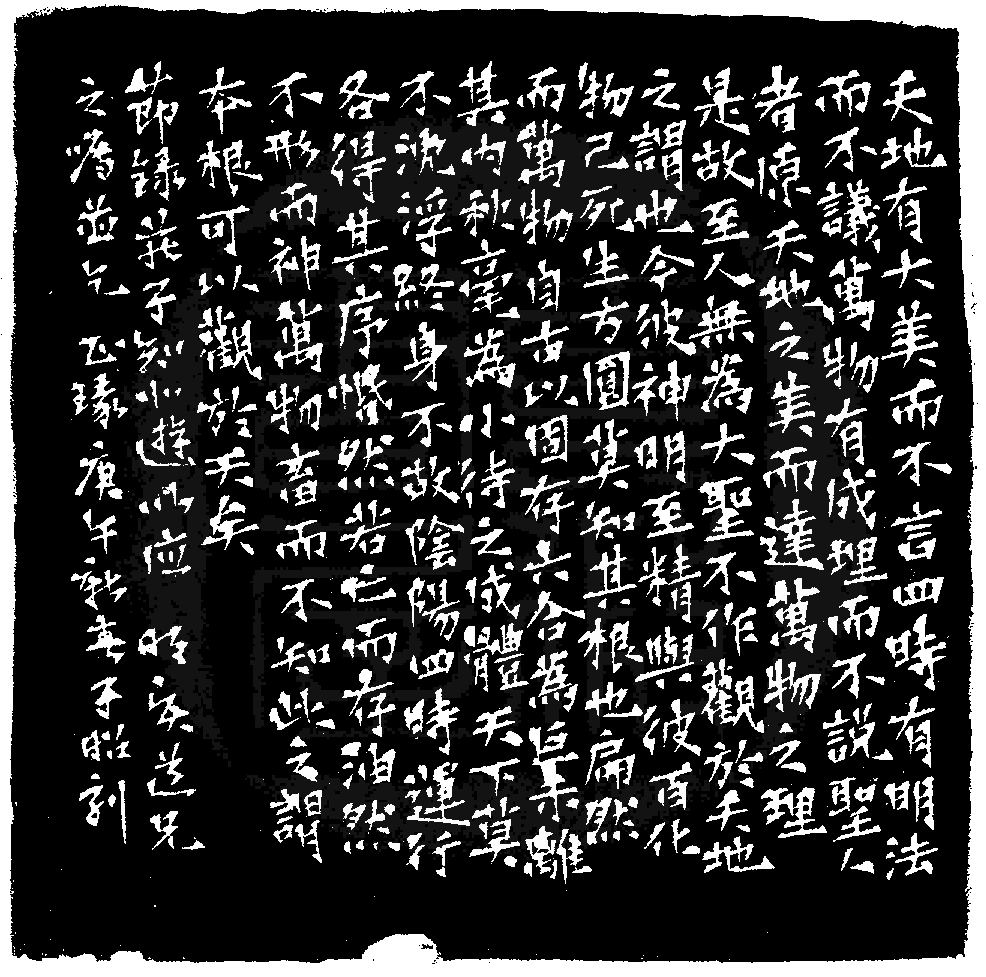 天地有大美而不言四時有明法
而不議萬物有成理而不說聖人
者原天地之美而達萬物之理
是故至人無為大聖不作觀於天地
之謂也今彼神明至精與彼百化
物已死生方圓莫知其根也扁然
而萬物自古以固存六合為巨未離
其內秋毫為小待之成體天下莫
不沈浮終身不故陰陽四時運行
各得其序惛然若亡而存油然
不形而神萬物畜而不知此之謂
本根可以觀於天矣
節錄莊子知北遊以應 旺安道兄
之囑並乞 正瑑庚午新春子昭刻